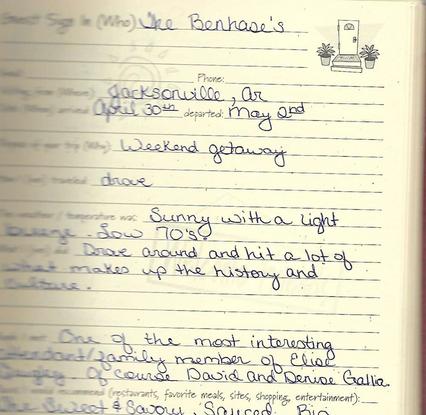 Guest Sign In (Who) The Benhase's
Phone:
Jacksonville, Ar
April 30th departed: May 2nd
your trip (Why) Weekend getaway
traveled drove
weather / temperature was Sunny with a light
breeze. Low 70's.
Drove around and hit a lot of
what makes up the history and
culture.
One of the most interesting
attendant/family member of Elise
Of course David and Denise Gallia.
recommend (restaurants, favorite meals, sites, shopping, entertainment):
Sweet & Savory, Sauced, Big